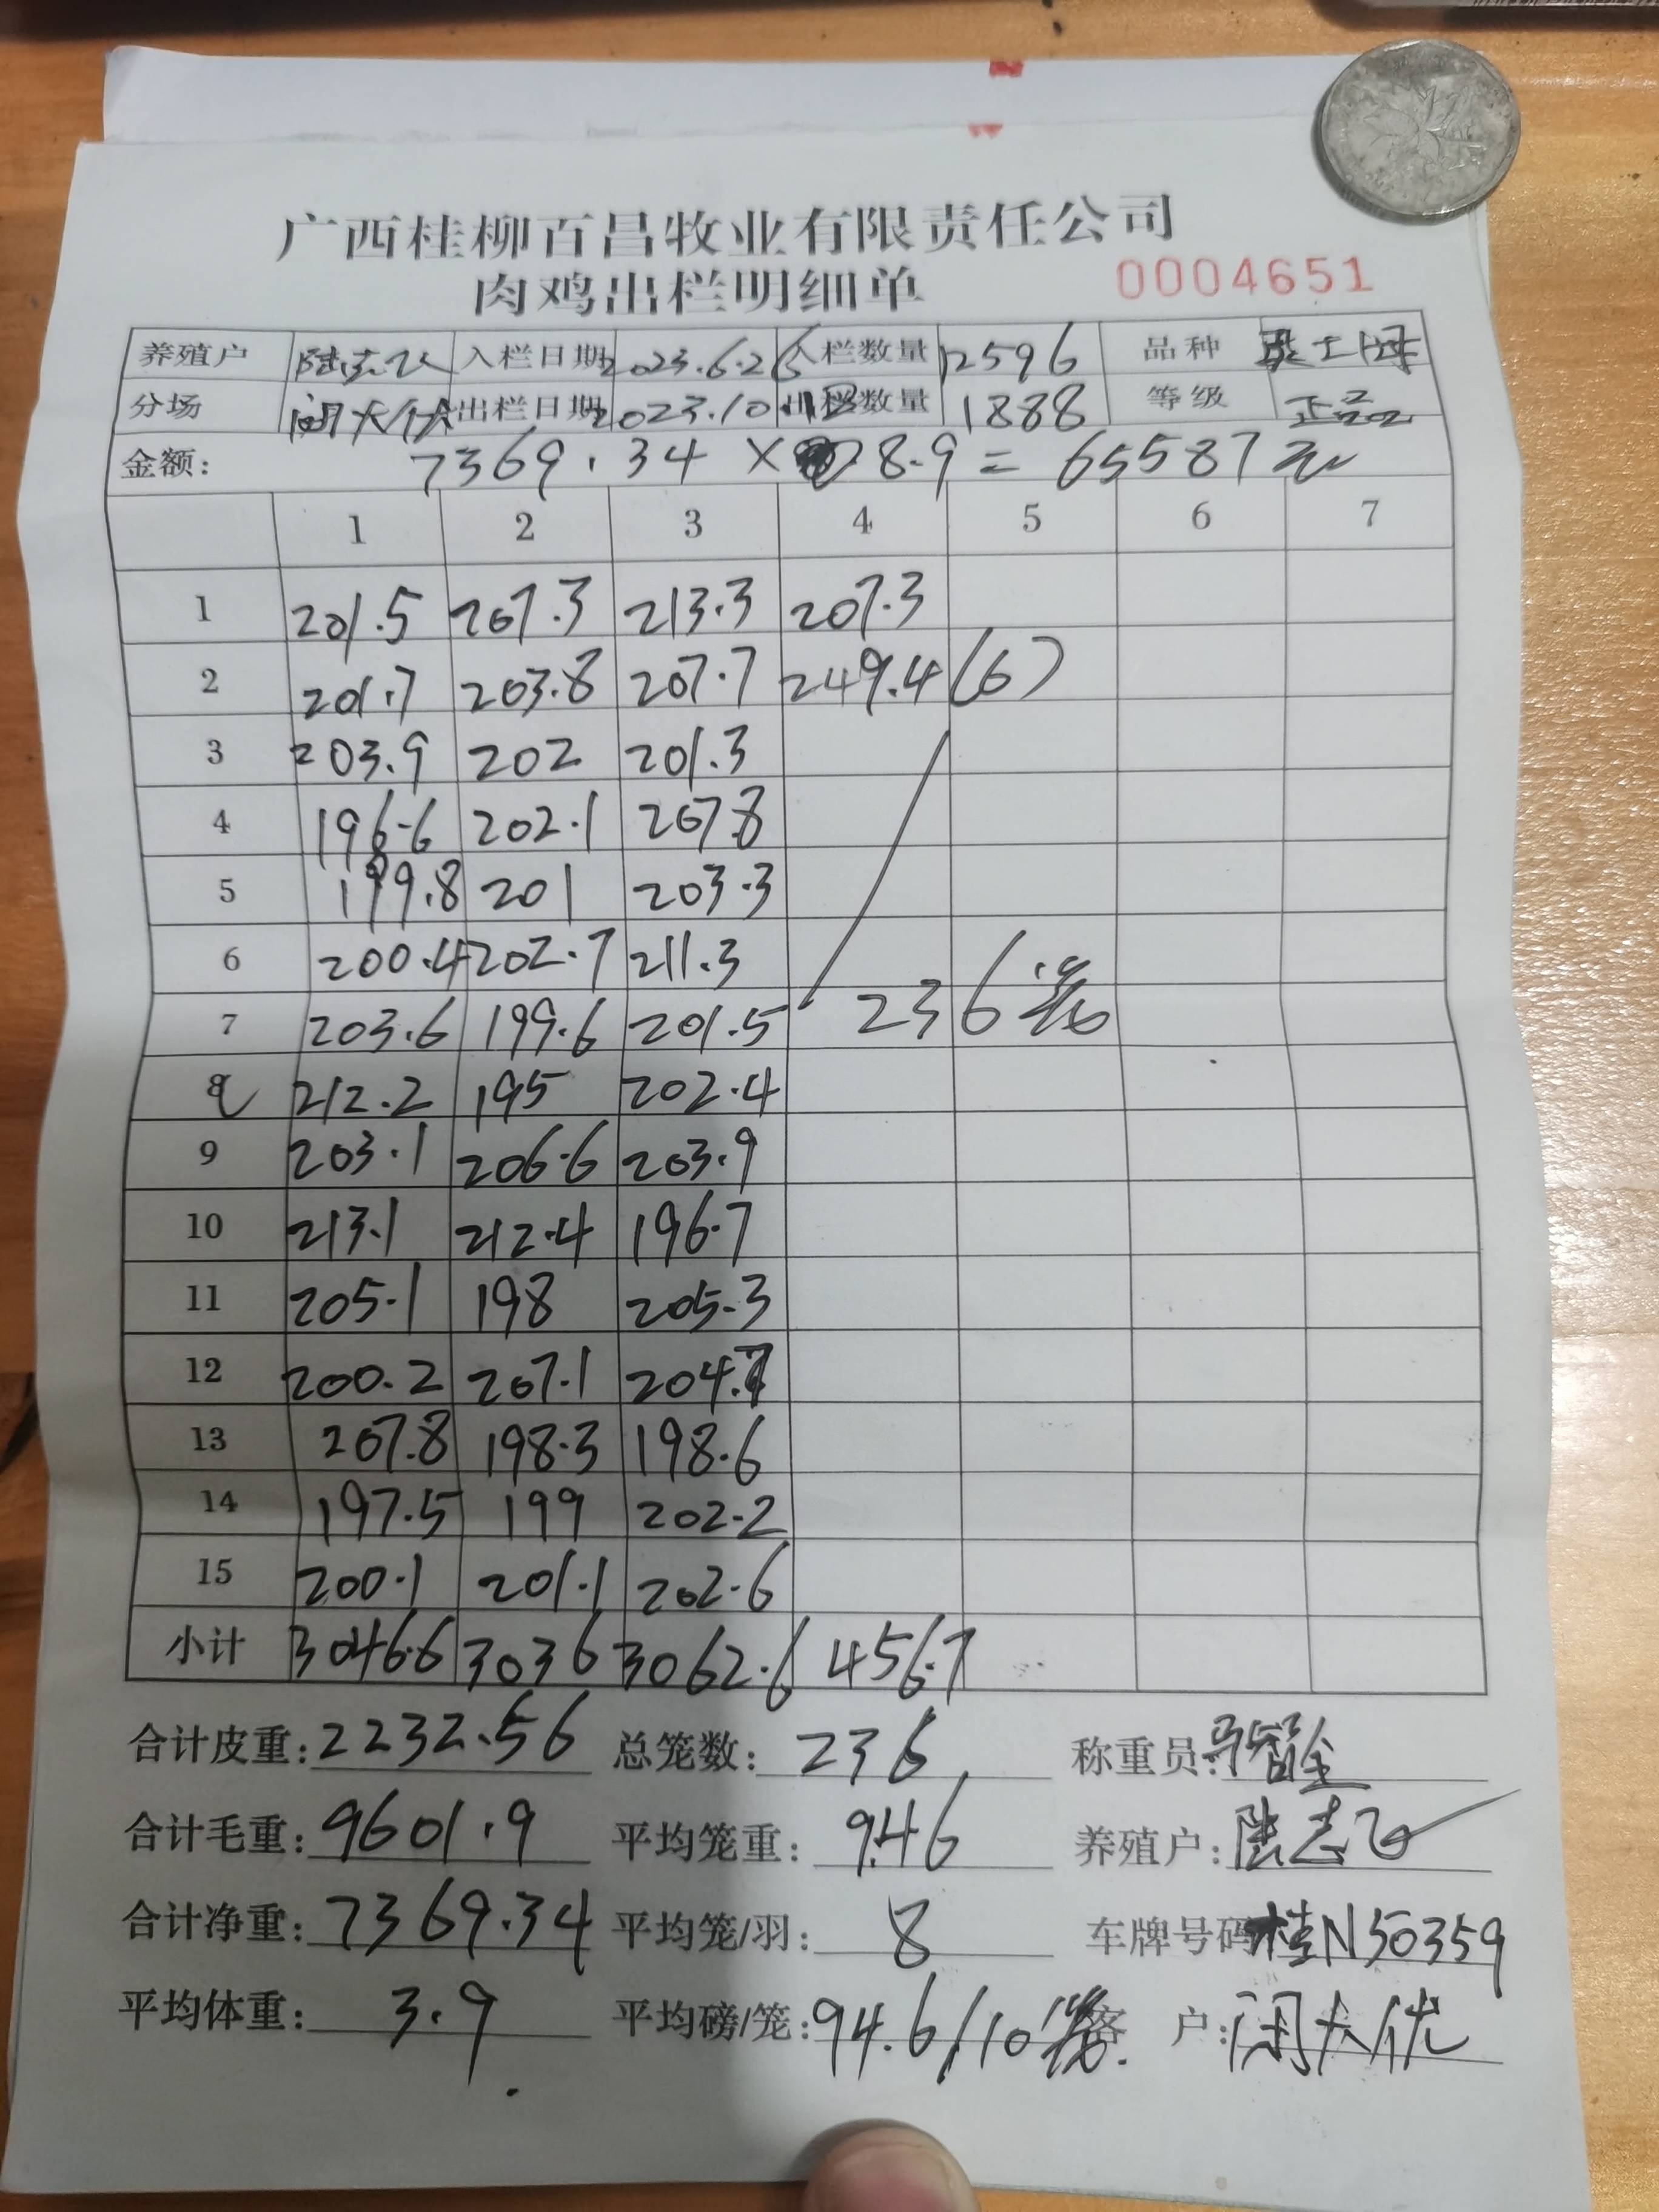 广西桂柳百昌牧业有限责任公司
肉鸡出栏明细单 0004651
养殖户 陆志飞 入栏日期 2023.6.26 入栏数量 12596 品种
分场 闭大优 出栏日期 2023.10 出栏数量 1888 等级 正品
金额: 7369.34 × 8.9 = 65587元
1 2 3 4 5 6 7
1 201.5 207.3 213.3 207.3
2 201.7 203.8 207.7 249.4 (6)
3 203.9 202 201.3
4 196.6 202.1 207.8
5 199.8 201 203.3
6 200.4 202.7 211.3
7 203.6 199.6 201.5 236笼
8 212.2 195 202.4
9 203.1 206.6 203.9
10 213.1 212.4 196.7
11 205.1 198 205.3
12 200.2 207.1 204.7
13 207.8 198.3 198.6
14 197.5 199 202.2
15 200.1 201.1 202.6
小计 3046.6 3036 3062.6 456.7
合计皮重: 2232.56 总笼数: 236 称重员:
合计毛重: 9601.9 平均笼重: 9.46 养殖户: 陆志飞
合计净重: 7369.34 平均笼/羽: 8 车牌号码 桂N50359
平均体重: 3.9 平均磅/笼: 94.6/10笼. 客 户: 闭大优